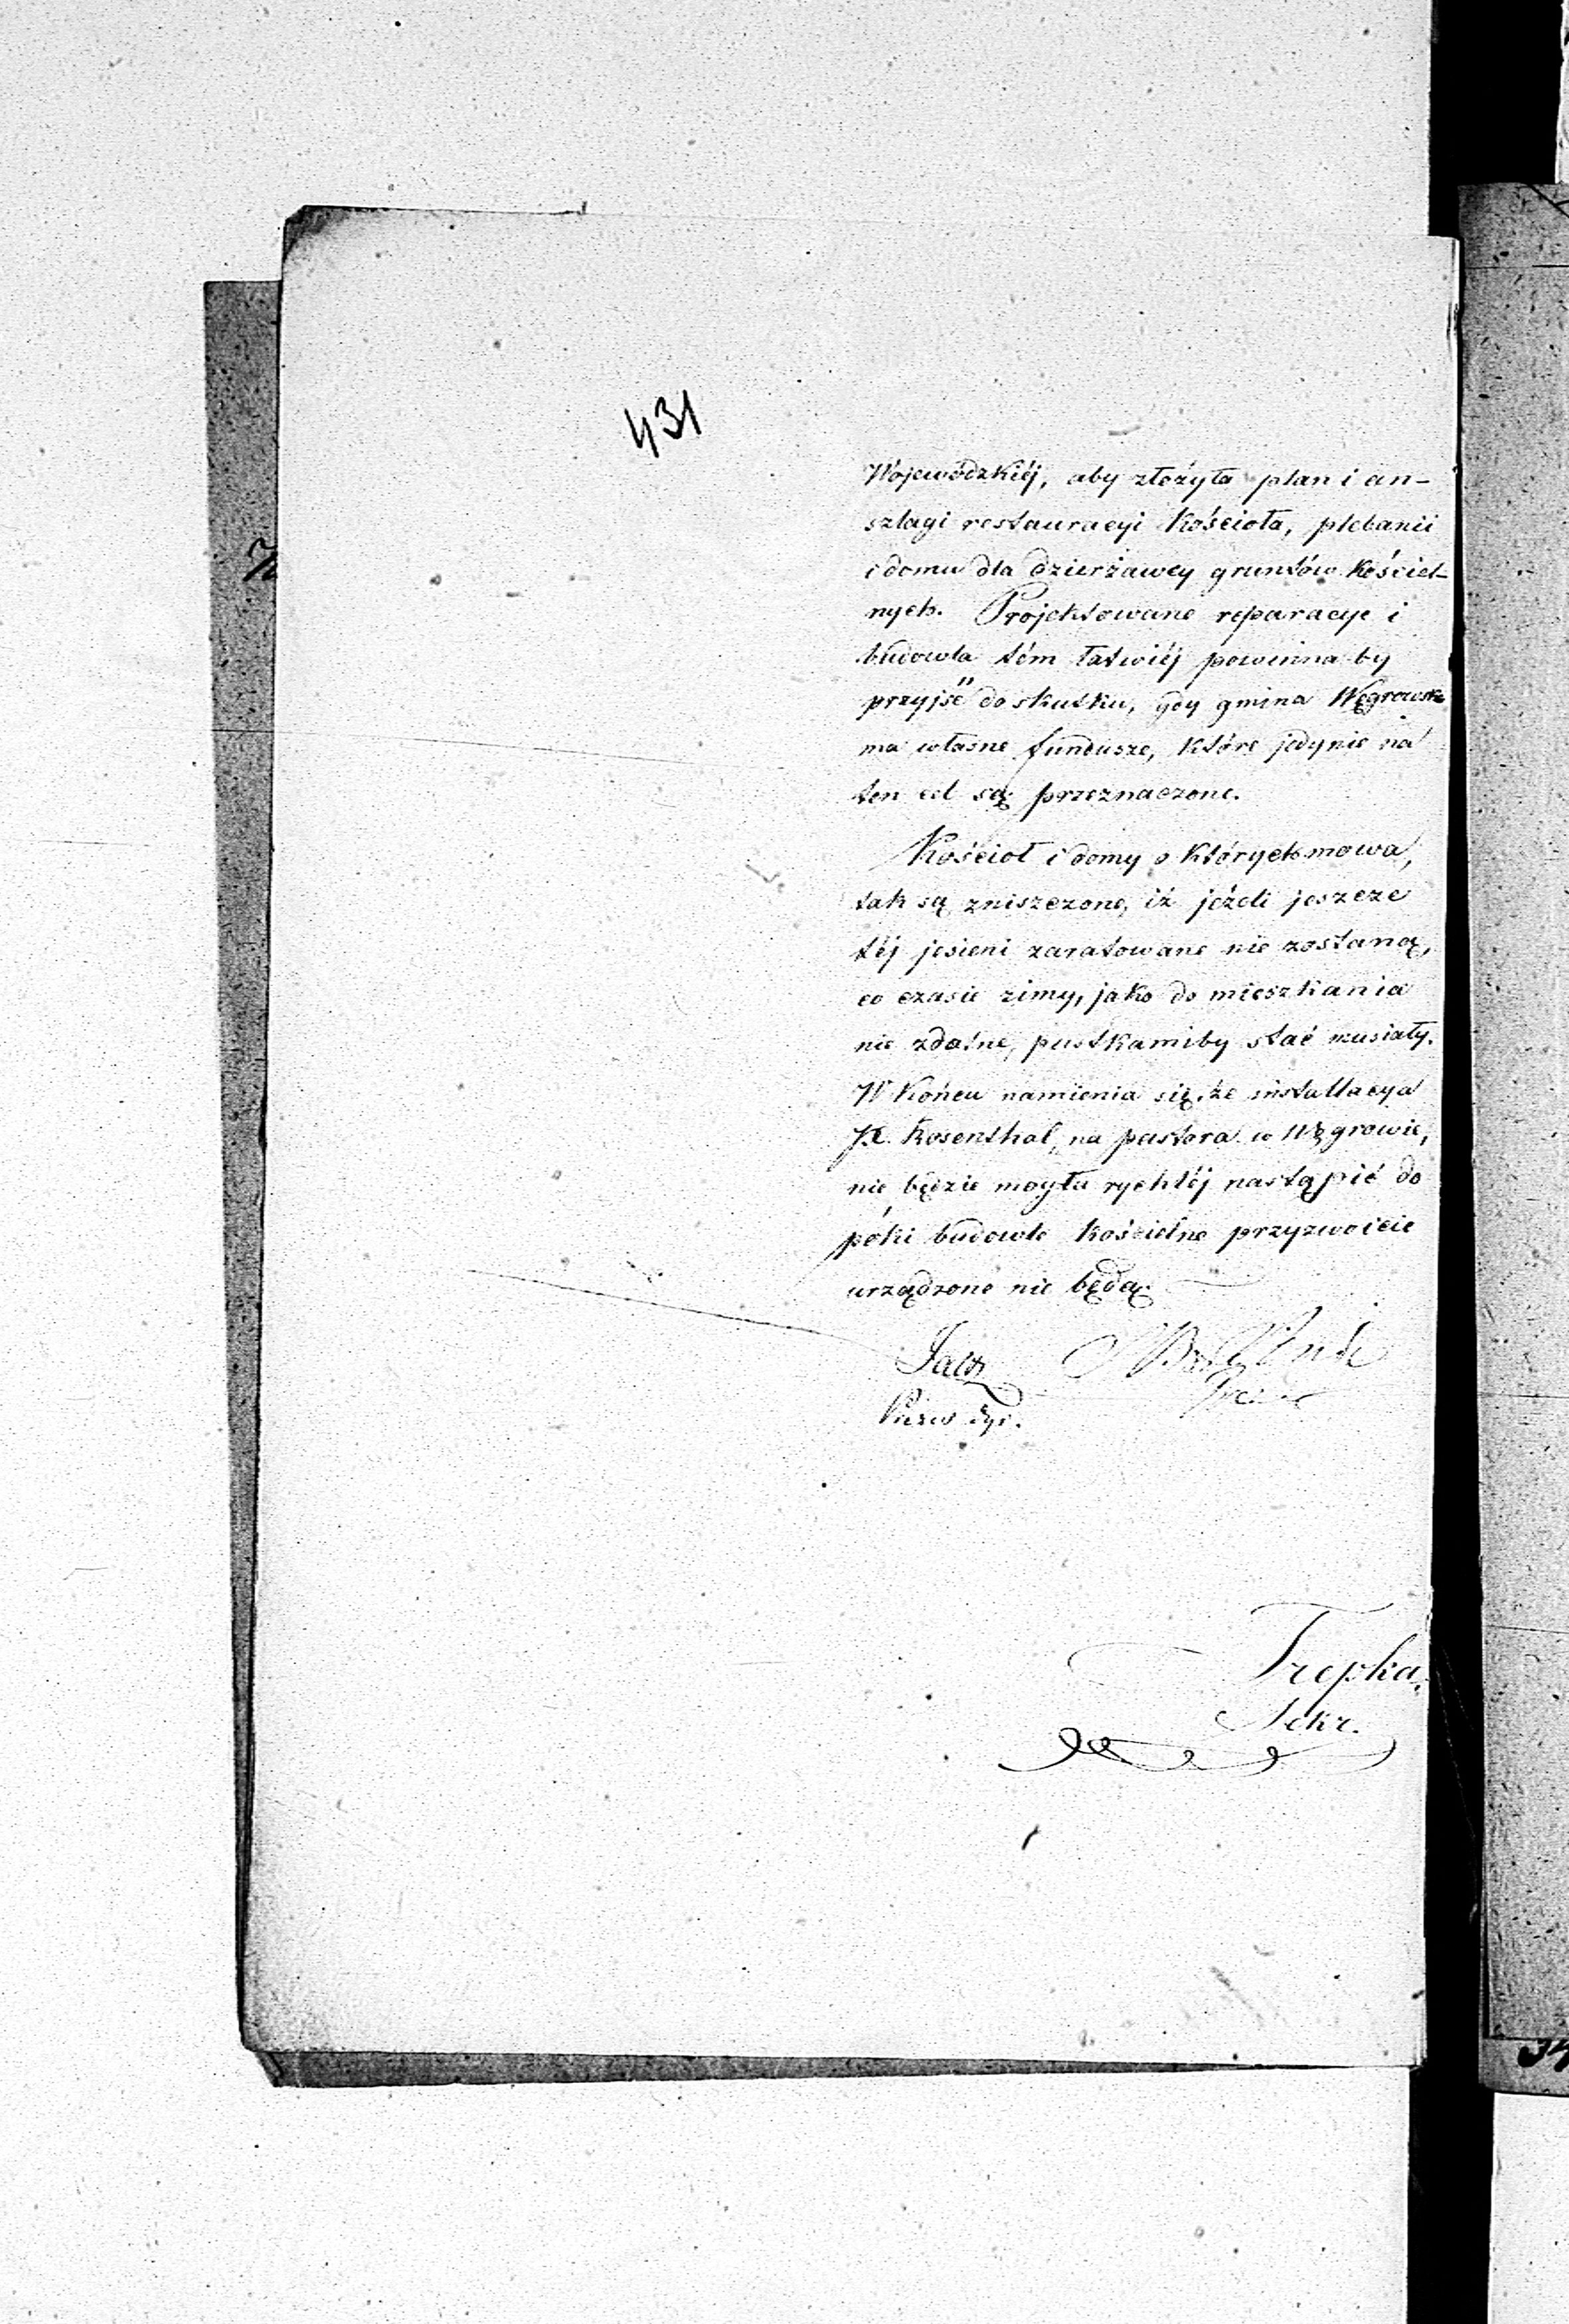 431
Wojewódzkiéj, aby złożyła plan i an-
szlagi restauracyi Kościoła, plebanii
i domu dla dzierżawcy gruntów Kościel-
nych. Projektowane reparacye i
budowla tém łatwiéj powinna by
przyjść do skutku, gdy gmina Węgrowska
ma własne fundusze, które jedynie na
ten cel są przeznaczone.
Kościoł i domy o których mowa,
tak są zniszczone, iż jeżeli jeszcze
téj jesieni zaratowane nie zostaną,
w czasie zimy, jako do mieszkania
nie zdolne, pustkamiby stać musiały.
W Końcu namienia się, że installacya
X. Rosenthal, na pastora w Węgrowie,
nie będzie mogła rychléj nastąpić do
póki budowle kościelne przyzwoicie
urządzone nie będą.
Trepka,
Sekr.
34